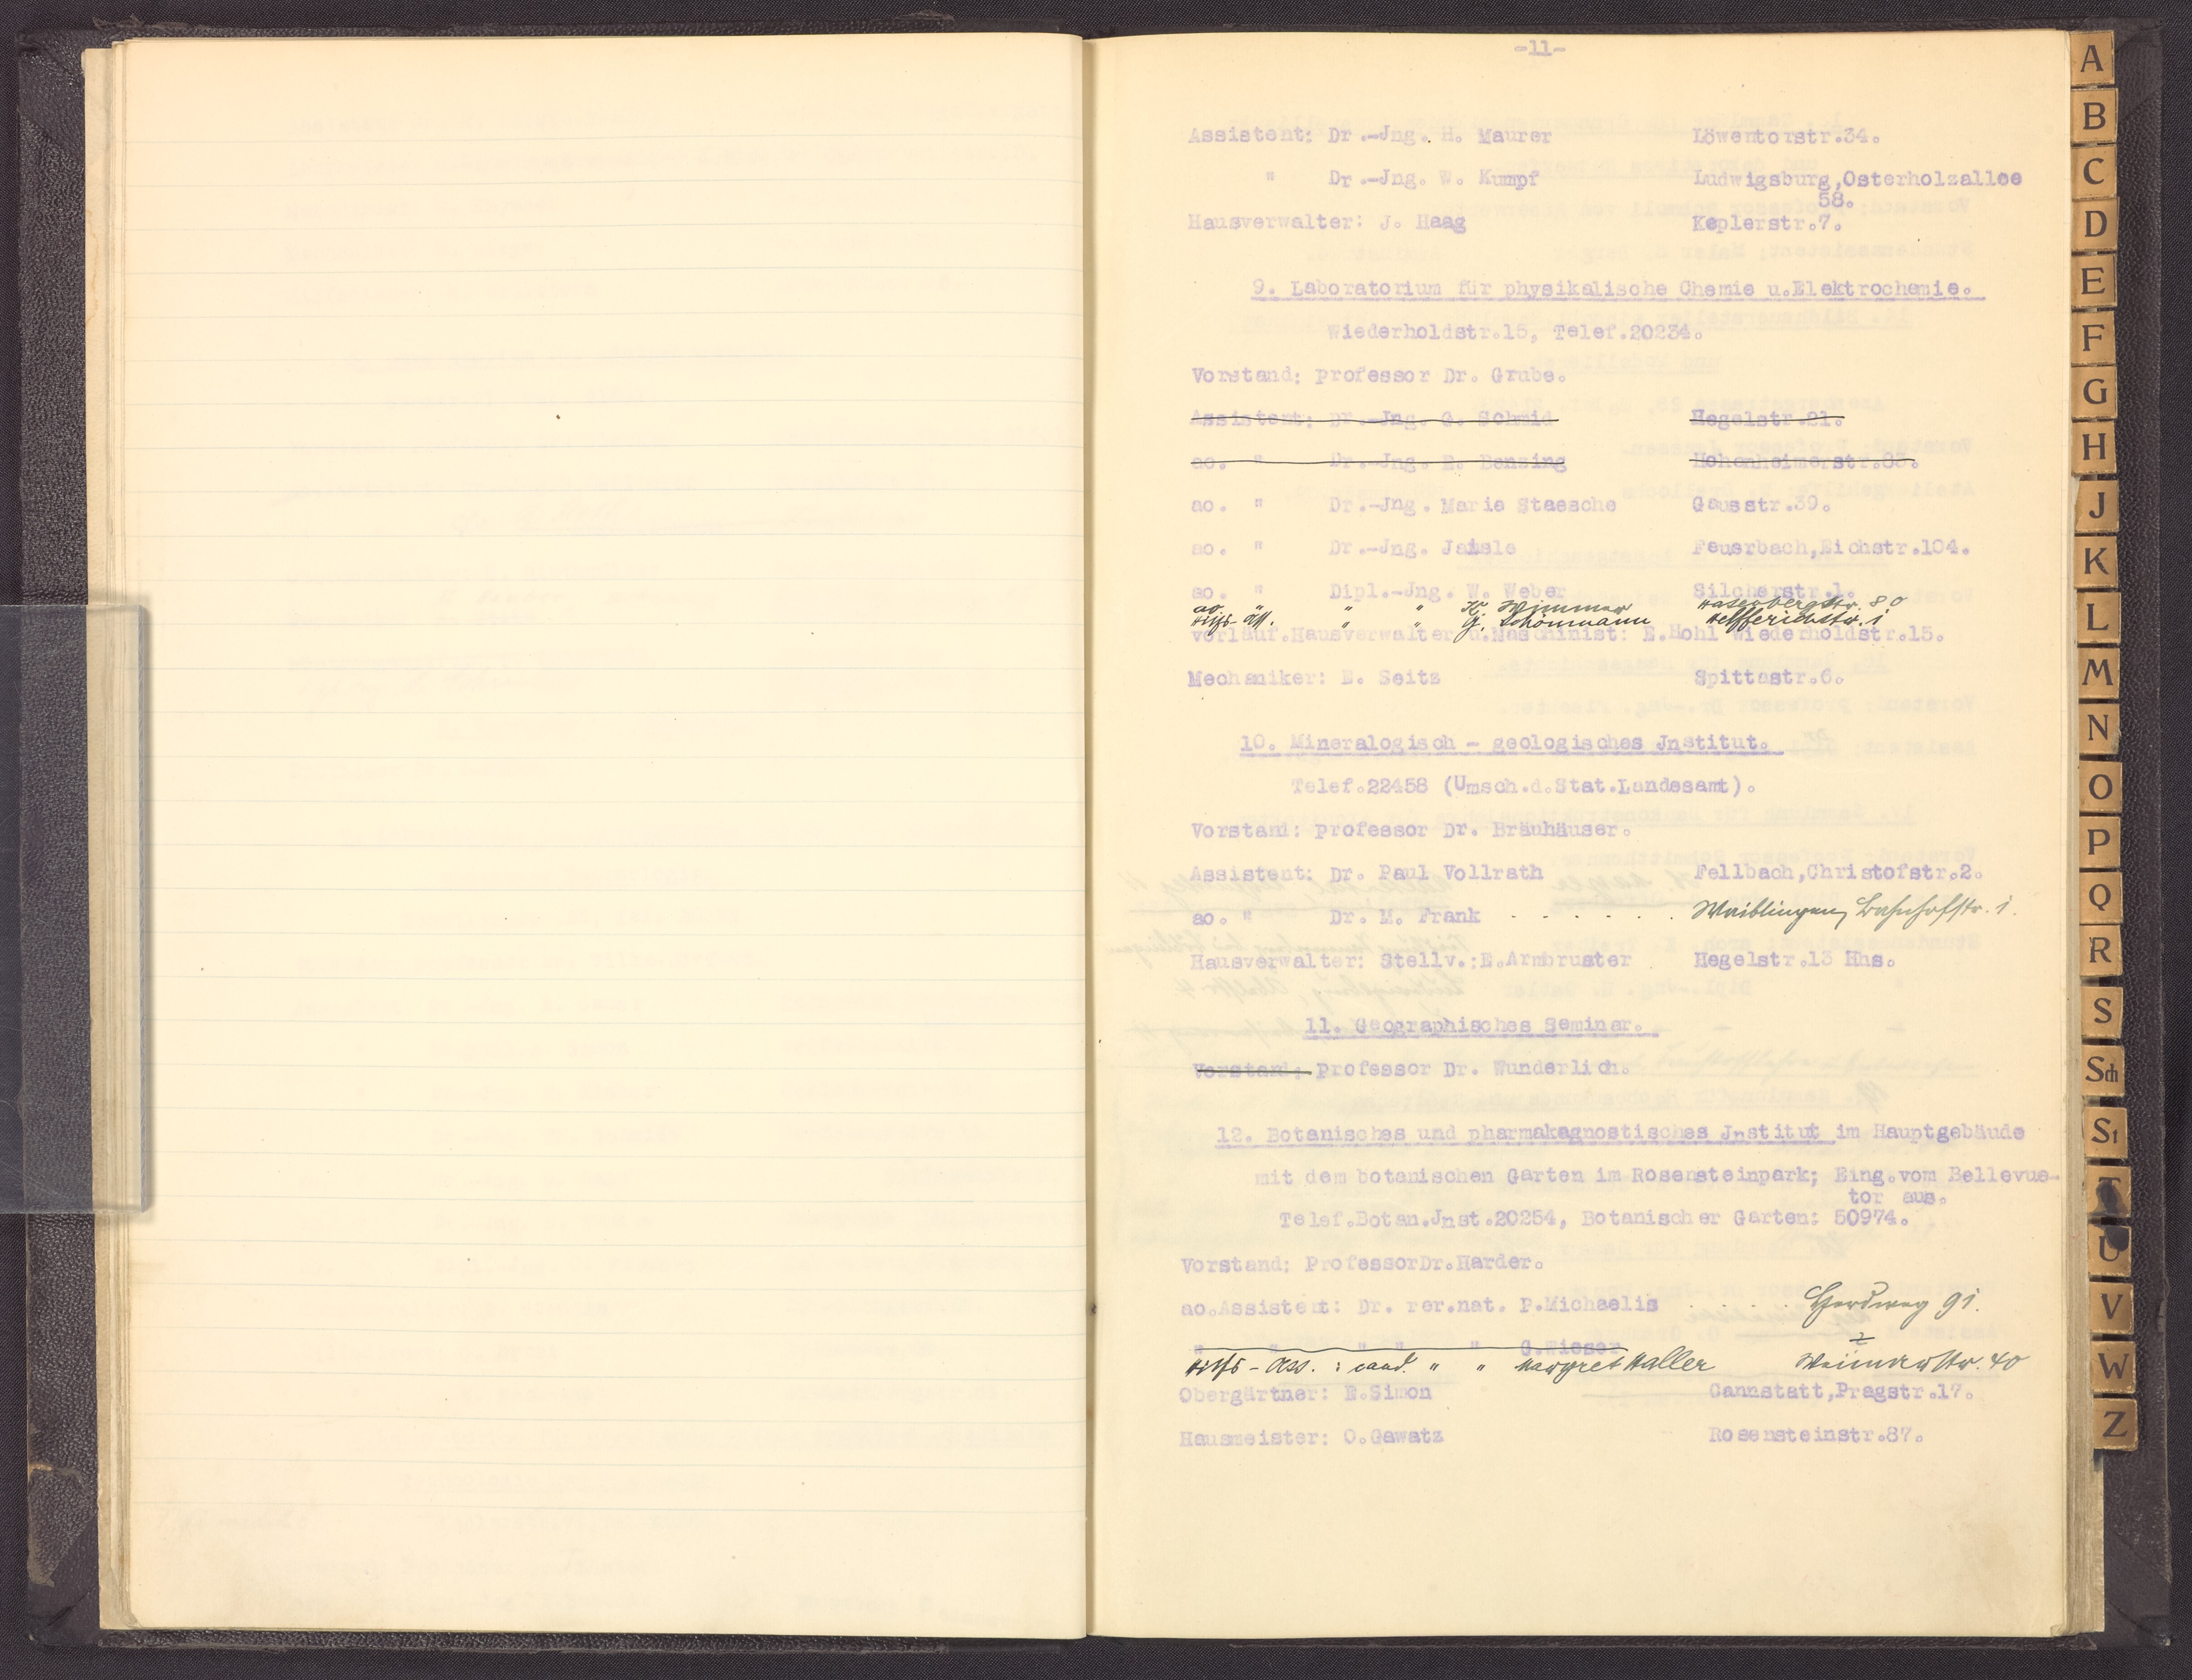 -11-
Assistent: Dr.-Jng. H. Maurer Löwentorstr.34.
" Dr.-Jng. W. Kumpf Ludwigsburg,Osterholzallee
58.
Hausverwalter: J. Haag Keplerstr.7.
9. Laboratorium für physikalische Chemie u.Elektrochemie.
Wiederholdstr.15, Telef.20234.
Vorstand: Professor Dr. Grube.
Assistent: Dr.-Jng. G. Schmid Hegelstr.21.
ao. " Dr.-Jng. E. Bensing Hohenheimerstr.63.
ao. " Dr.-Jng. Marie Staesche Gausstr.39.
ao. " Dr.-Jng. Jaisle Feuerbach,Eichstr.104.
ao. " Dipl.-Jng. W. Weber Silcherstr.1.
ao. " " " K. Wimmer Hasenbergstr. 80
Hilfs-Ass. " " G. Schönmann Helfferichstr. 1
vorläuf.Hausverwalter u.Maschinist: E.Hohl Wiederholdstr.15.
Mechaniker: E. Seitz Spittastr.6.
10. Mineralogisch - geologisches Jnstitut.
Telef.22458 (Umsch.d.Stat.Landesamt).
Vorstand: Professor Dr. Bräuhäuser.
Assistent: Dr. Paul Vollrath Fellbach,Christofstr.2.
ao. " Dr. M. Frank . . . . . . Waiblingen, Bahnhofstr. 1.
Hausverwalter: Stellv.:E.Armbruster Hegelstr.13 Hhs.
11. Geographisches Seminar.
Vorstand: Professor Dr. Wunderlich.
12. Botanisches und pharmakognostisches Jnstitut im Hauptgebäude
mit dem botanischen Garten im Rosensteinpark; Eing.vom Bellevue-
tor aus.
Telef.Botan.Jnst.20254, Botanischer Garten: 50974.
Vorstand: ProfessorDr.Harder.
ao.Assistent: Dr. rer.nat. P.Michaelis . . . . Herdweg 91.
" " " " " G.Wieser
Hilfs-Ass. : cand. " " Margret Haller Weimarstr. 40
Obergärtner: E.Simon Cannstatt,Pragstr.17.
Hausmeister: O.Gawatz Rosensteinstr.87.
A
B
C
D
E
F
G
H
J
K
L
M
N
O
P
Q
R
S
Sch
St
T
U
V
W
Z